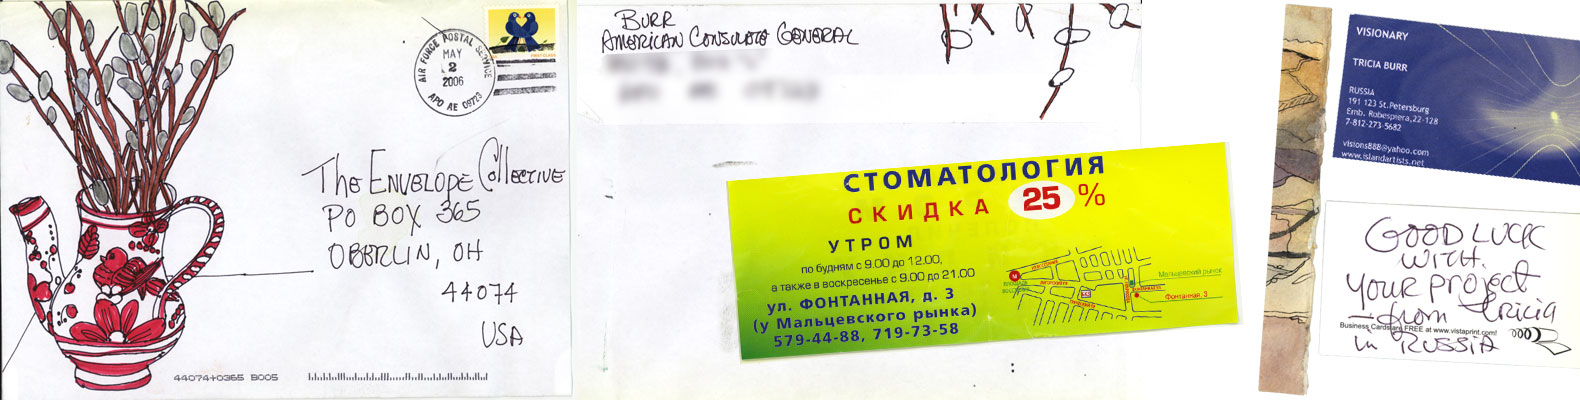 AIR FORCE POSTAL SERVICE
MAY
2
2006
APO AE 09723
FIRST-CLASS
The Envelope Collective
PO BOX 365
OBERLIN, OH
44074
USA
44074+0365 B005
BURR
AMERICAN CONSULATE GENERAL
СТОМАТОЛОГИЯ
СКИДКА 25 %
УТРОМ
по будням с 9.00 до 12.00,
а также в воскресенье с 9.00 до 21.00
ул. ФОНТАННАЯ, д. 3
(у Мальцевского рынка)
579-44-88, 719-73-58
М
Мальцевский рынок
Фонтанная, 3
VISIONARY
TRICIA BURR
RUSSIA
191 123 St.Petersburg
Emb. Robespiera,22-128
7-812-273-5682
visions888@yahoo.com
www.islandartists.net
GOOD LUCK
WITH
YOUR PROJECT
—from Tricia
Business Cards are FREE at www.vistaprint.com!
in RUSSIA